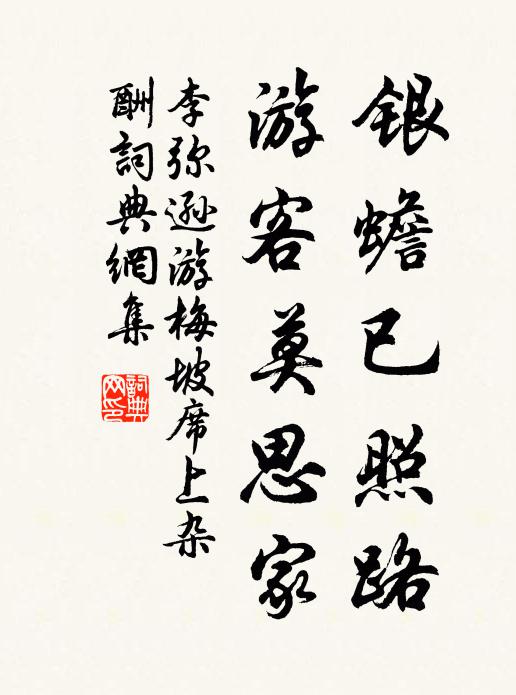 银蟾已照路
游客莫思家
李弥逊游梅坡席上杂
酬詞典網集
詞典网印